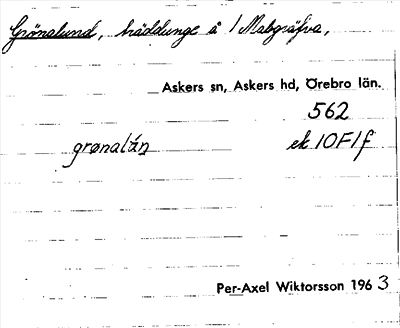 Grönalund, träddunge å 1 Malgräfva,
Askers sn, Askers hd, Örebro län.
562
grønalán ek 10F1f
Per-Axel Wiktorsson 1963